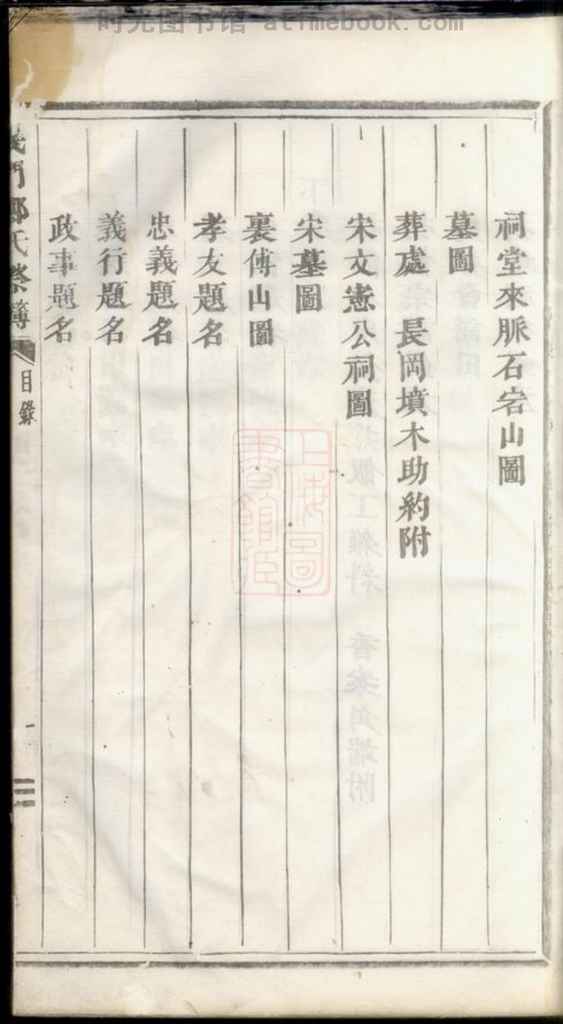 时光图书馆 atimebook.com
祠堂來脈石宕山圖
墓圖
葬處 長岡墳木助約附
宋文憲公祠圖
宋墓圖
裏傅山圖
孝友題名
忠義題名
義行題名
政事題名
義門鄭氏祭簿
目錄
二
上海圖書館藏